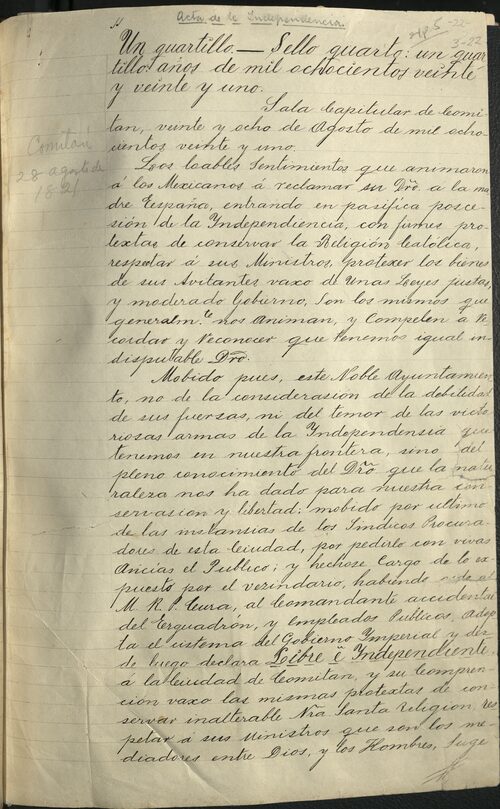 Acta de la Independencia.
5-22
3-22
Comitán
28 agosto de
1821
Un quartillo.— Sello quarto: un quar-
tillo: años de mil ochocientos veinte
y veinte y uno.
Sala Capitular de Comi-
tan, veinte y ocho de Agosto de mil ocho-
cientos veinte y uno.
Los loables Sentimientos que animaron
á los Mexicanos á reclamar su Dro. a la ma-
dre Eespaña, entrando en pasifica posce-
sión de la Yndependiencia, con firmes pro-
textas de conservar la Religión Católica,
respetar á sus Ministros, protexer los bienes
de sus Avitantes vaxo de Unas Leyes justas,
y moderado Gobierno, Son los mismos que
generalm.te nos animan, y Compelen á Re-
cordar y Reconocer que tenemos igual in-
disputable Dro.
Mobido pues, este Noble Ayuntamien-
to, no de la considerasión de la debilidad
de sus fuersas, ni del temor de las victo-
riosas armas de la Yndependensia que
tenemos en nuestra frontera, sino del
pleno conocimiento del Dro que la natu-
raleza nos ha dado para nuestra con-
servasion y libertad: mobido por ultimo
de las instansias de los Síndicos Procura-
dores de esta Ciudad, por pedirlo con vivas
Ancias el Publico; y hechose Cargo de lo ex-
puesto por el vezindario, habiendo oido al
M. R. P. Cura, al Comandante accidental
del Esquadron, y empleados Publicos, Adop-
ta el sistema del Gobierno Imperial y des-
de luego declara Libre é Yndependiente
á la Ciudad de Comitan, y su Compren-
ción vaxo las mismas protextas de con-
servar inalterable Nra Santa Religion, res-
petar á sus Ministros que son los me-
diadores entre Dios, y los Hombres, Suge-